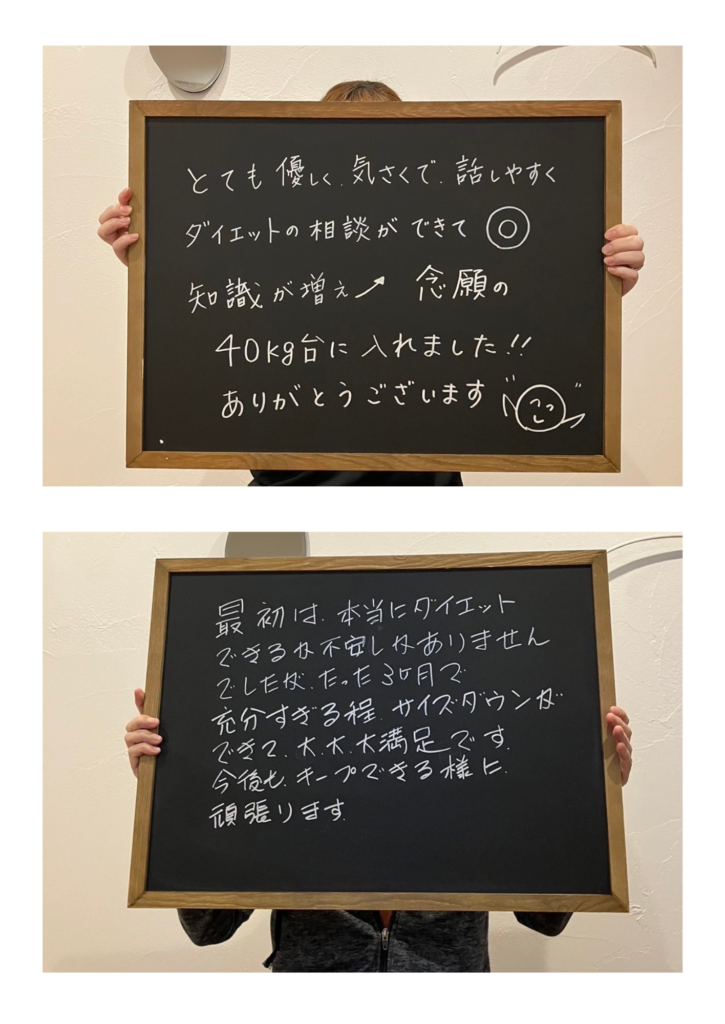 とても優しく、気さくで、話しやすく
ダイエットの相談ができて◎
知識が増え↗ 念願の
40kg台に入れました!!
ありがとうございます
最初は、本当にダイエット
できるか不安しかありません
でしたが、たった3ヶ月で
充分すぎる程、サイズダウンが
できて、大、大、大満足です。
今後も、キープできる様に、
頑張ります。